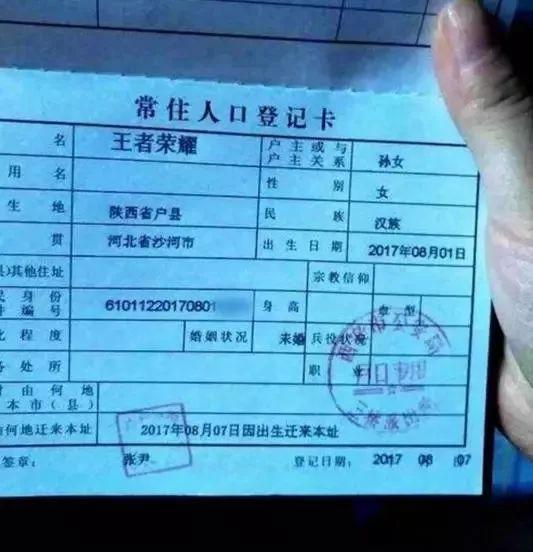 常住人口登记卡
名 王者荣耀 户主或与户主关系 孙女
用名 性别 女
生地 陕西省户县 民族 汉族
贯 河北省沙河市 出生日期 2017年08月01日
县)其他住址 宗教信仰
民身份 件编号 61011220170801 身高 血型
化程度 婚姻状况 未婚 兵役状况
务处所 职业
时由何地 本市(县)
何地迁来本址 2017年08月07日因出生迁来本址
签章: 张尹 登记日期: 2017 08 07